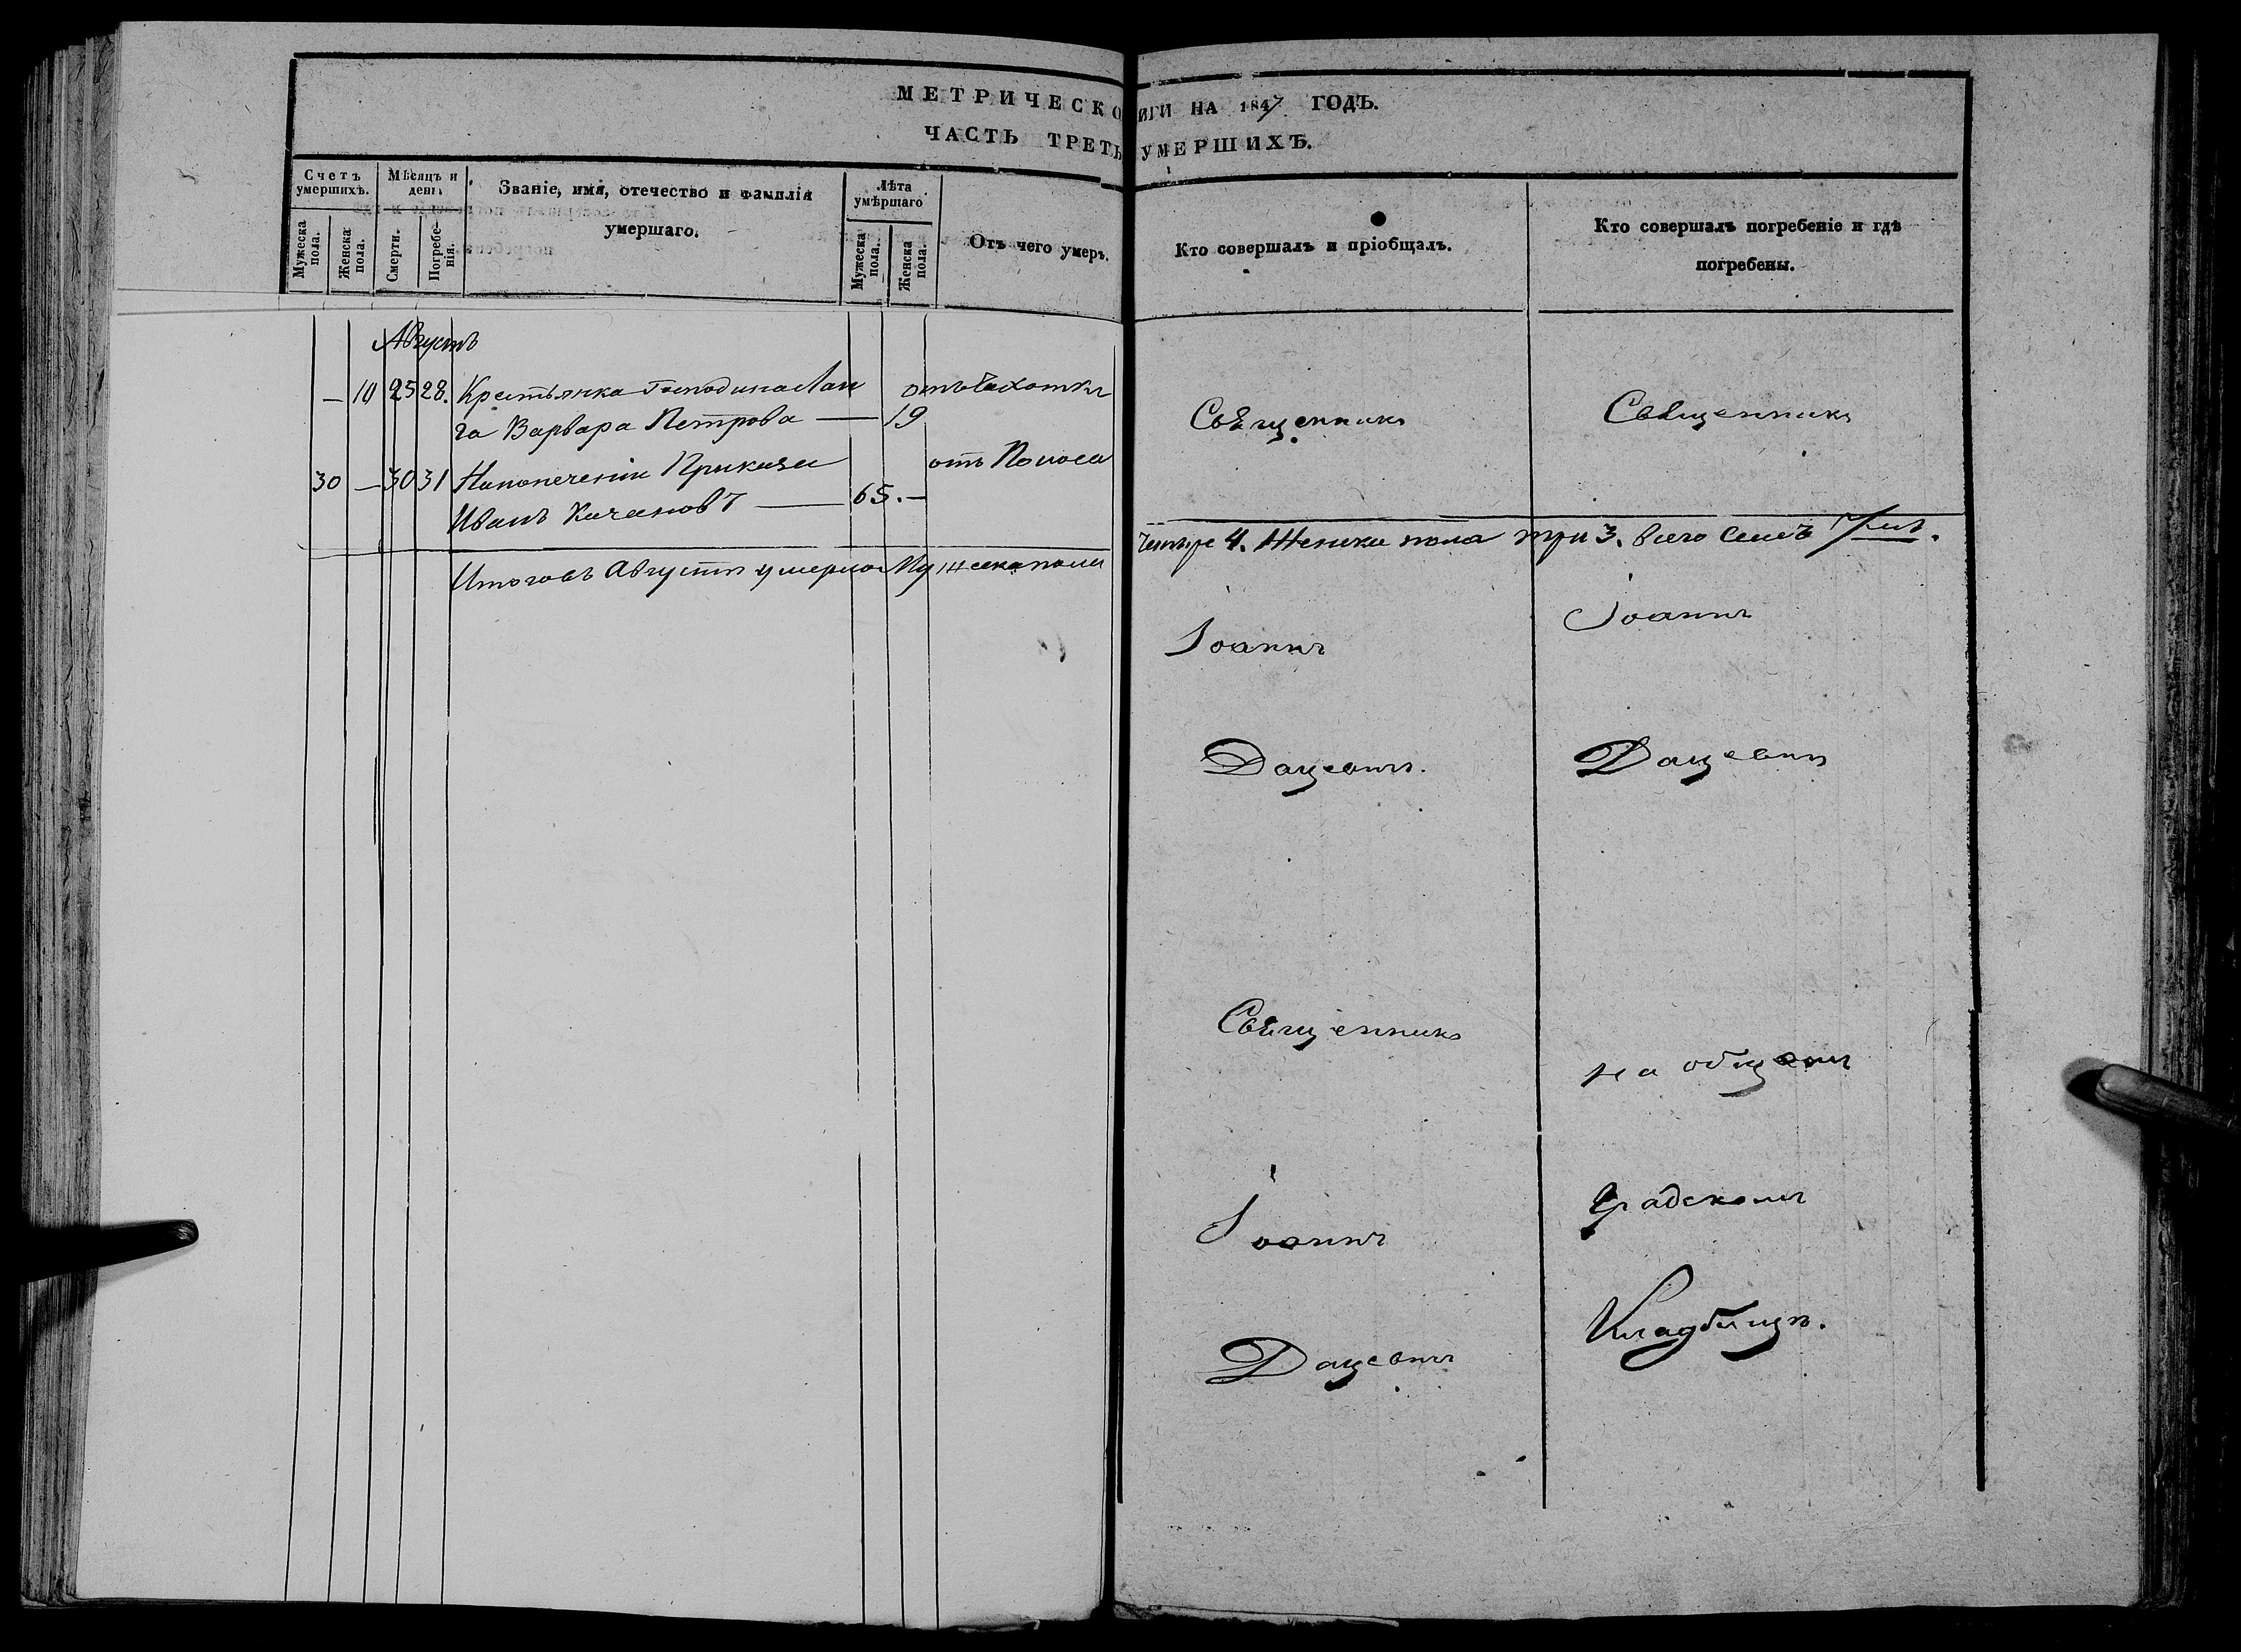 МЕТРИЧЕСКО ИГИ НА 1847 ГОДЪ.
ЧАСТЬ ТРЕТЬ УМЕРШИХЪ.
Счетъ умершихъ.
Мужеска пола.
Женска пола.
Мѣсяцъ и день
Смерти.
Погребенія.
Званіе, имя, отечество и фамилія
умершаго.
Лѣта умѣршаго
Мужеска пола.
Женска пола.
Отъ чего умеръ.
Кто совершалъ и пріобщалъ.
Кто совершалъ погребеніе и гдѣ
погребены.
Августъ
— 10 25 28. Крестьянка Господина Лан отъ Чахотки
га Варвара Петрова — 19
30 — 30 31 Напопеченіи Приказа отъ Поноса
Иванъ Качановъ — 65. —
Итого въ Августѣ умерло Мужеска пола
четыре 4. Женска пола три 3. всего семь 7мь.
Священникъ
Іоаннъ
Дацевичъ.
Священникъ
Іоаннъ
Дацевичъ
Священникъ
Іоаннъ
Дацевичъ
на общемъ
Градскомъ
Кладбищѣ.